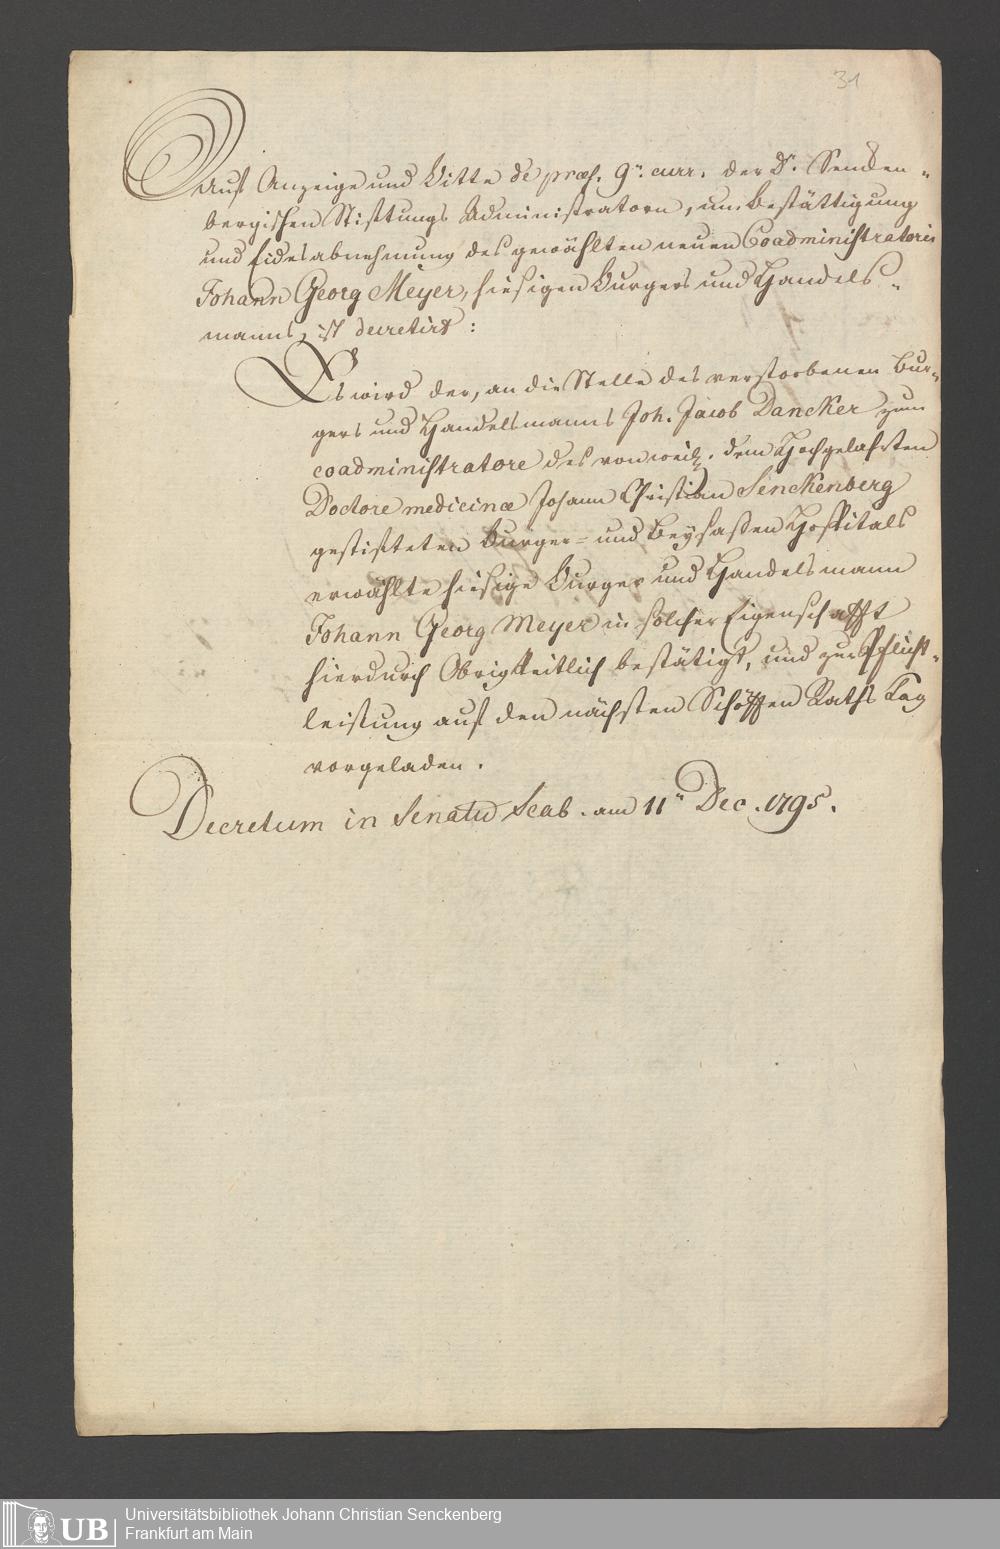 31
Auf Anzeige und Bitte de præs. 9n. curr. der Dr. Senken-
bergischen Stiftungs Administratorn, um Bestättigung
und Eidesabnehmung des gewählten neuen Coadministratoris
Johann Georg Meyer, hiesigen Burgers und Handels-
manns, ist decretirt:
Es wird der, an die Stelle des verstorbenen Bur-
gers und Handelsmanns Joh. Jacob Dancker zum
coadministratore des von weil. dem Hochgelahrten
Doctore medicinæ Johann Christian Senckenberg
gestifteten Burger- und Beysaßen Hospitals
erwählte hiesige Burger und Handelsmann
Johann Georg Meyer in solcher Eigenschafft
hierdurch Obrigkeitlich bestätigt, und zur Pflicht-
leistung auf den nächsten Schöffen Raths Tag
vorgeladen.
Decretum in Senatu Scab. am 11n Dec. 1795.
UB
Universitätsbibliothek Johann Christian Senckenberg
Frankfurt am Main